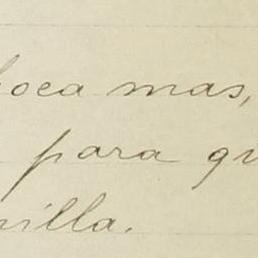 boca mas,
para qu
illa.